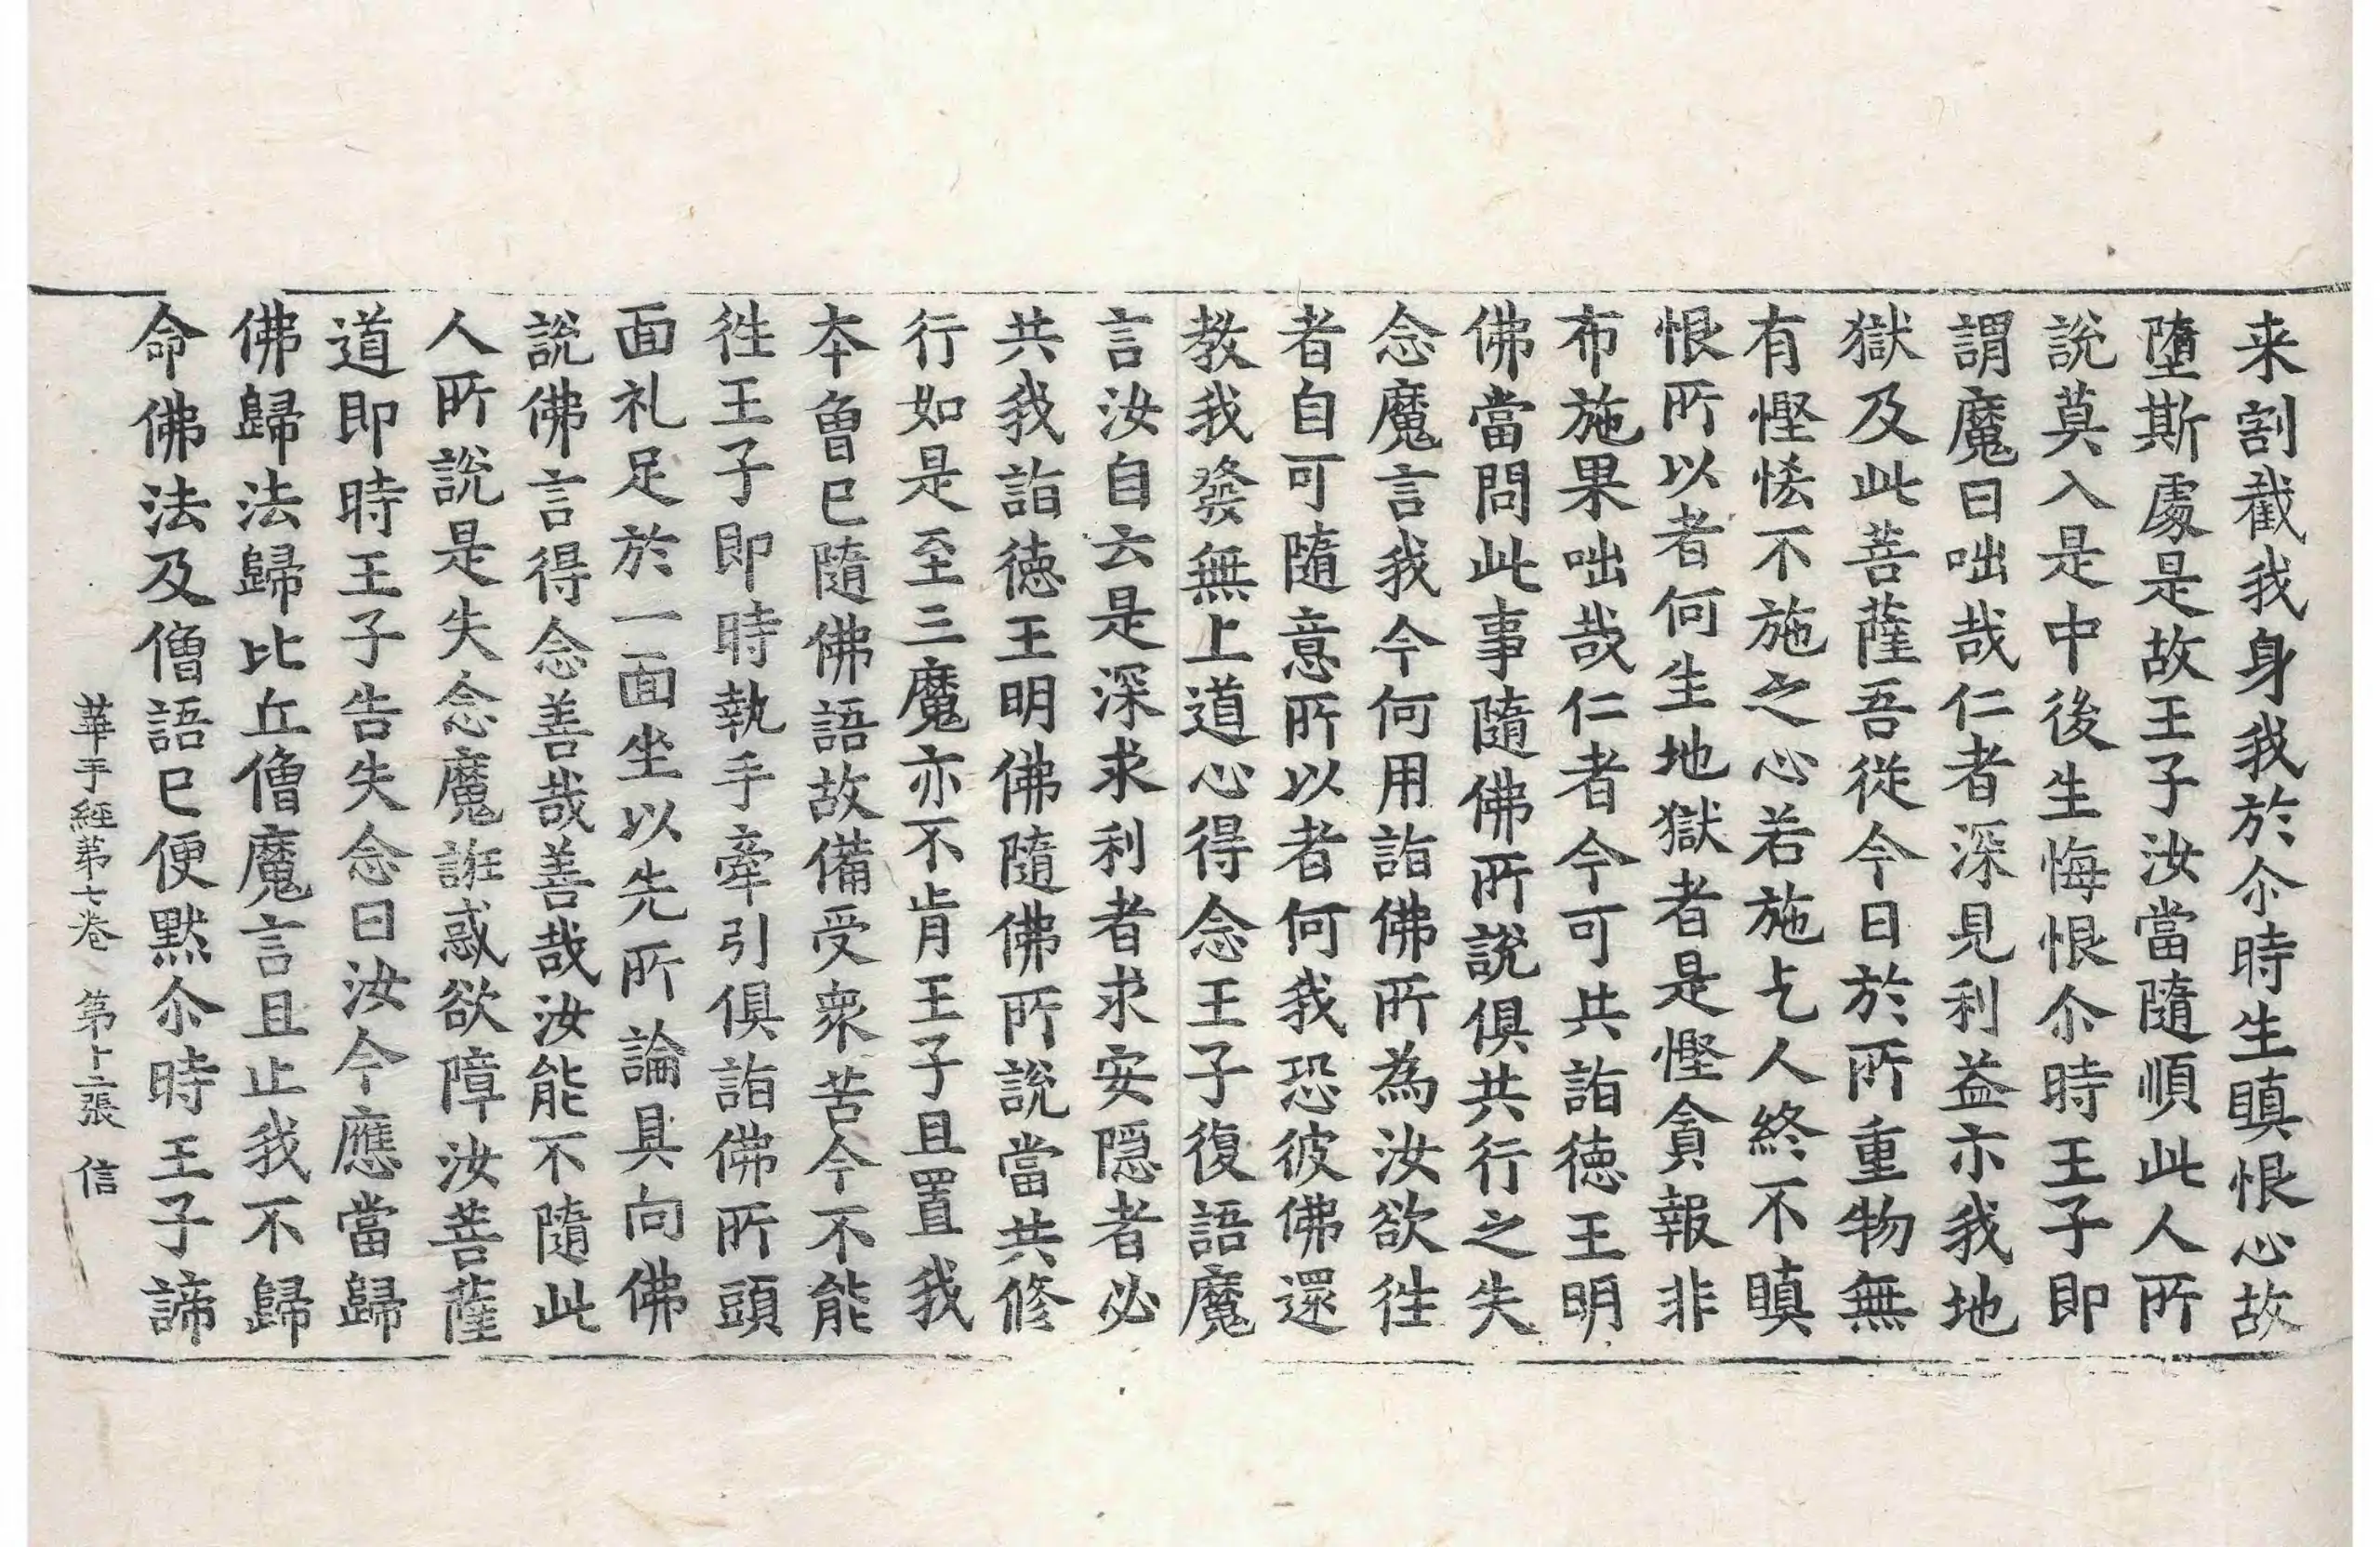 来割截我身我於尒時生瞋恨心故
墮斯處是故王子汝當隨順此人所
說莫入是中後生悔恨尒時王子即
謂魔曰咄哉仁者深見利益亦我地
獄及此菩薩吾從今日於所重物無
有慳悋不施之心若施乞人終不瞋
恨所以者何生地獄者是慳貪報非
布施果咄哉仁者今可共詣德王明
佛當問此事隨佛所說俱共行之失
念魔言我今何用詣佛所為汝欲往
者自可隨意所以者何我恐彼佛還
教我發無上道心得念王子復語魔
言汝自云是深求利者求安隱者必
共我詣德王明佛隨佛所說當共修
行如是至三魔亦不肯王子且置我
本曾已隨佛語故備受衆苦今不能
往王子即時執手牽引俱詣佛所頭
面礼足於一面坐以先所論具向佛
說佛言得念善哉善哉汝能不隨此
人所說是失念魔誑惑欲障汝菩薩
道即時王子告失念曰汝今應當歸
佛歸法歸比丘僧魔言且止我不歸
命佛法及僧語已便默尒時王子諦
華手經第七卷 第十二張 信